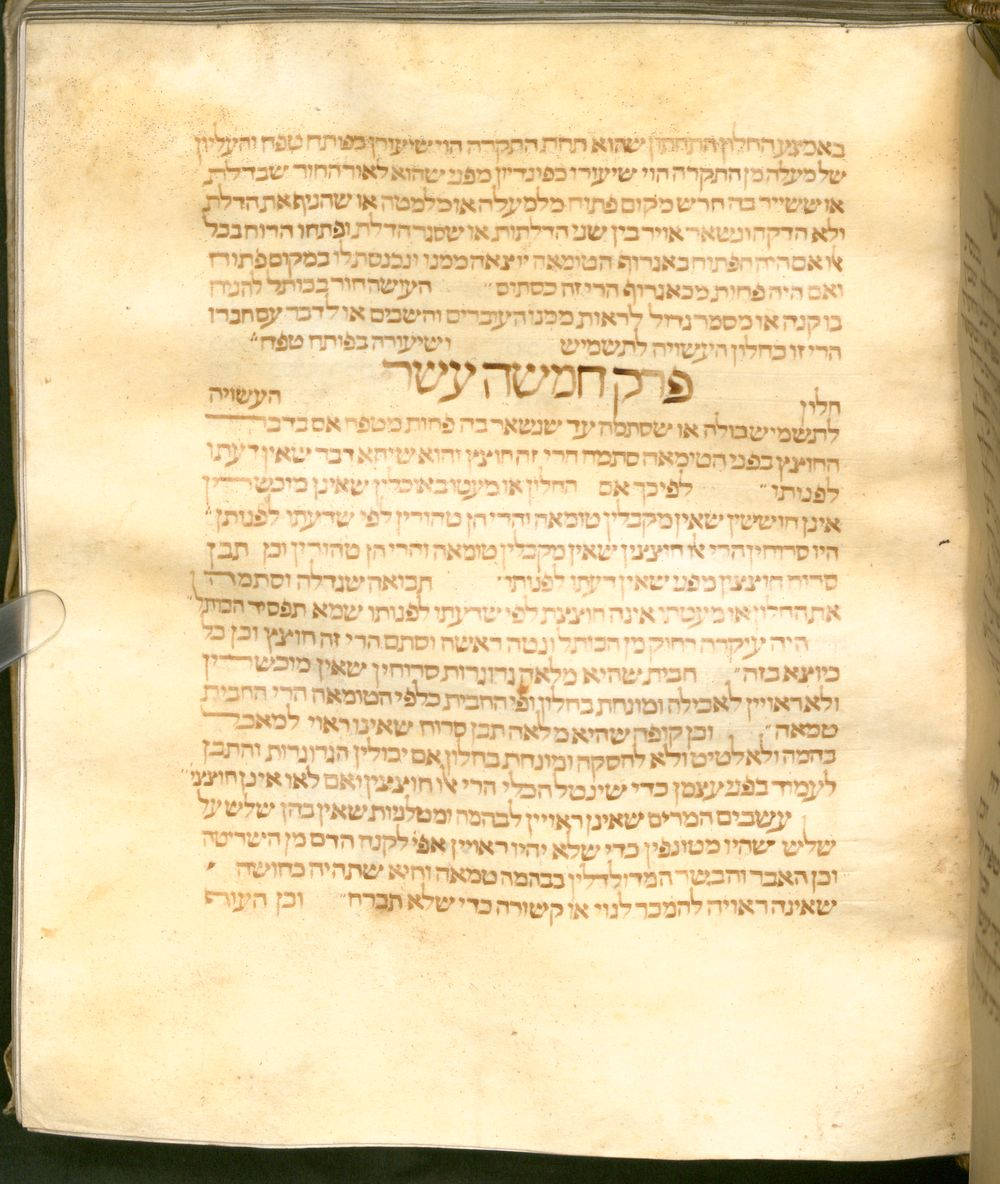 באמצע החלון התחתון שהוא תחת התקרה הוי שיעורן בפותח טפח והעליון
של מעלה מן התקרה הוי שיעורו כפונדיון מפני שהוא לאור החור שבדלת
או ששייר בה חרש מקום פתוח מלמעלה או מלמטה או שהגיף את הדלת
ולא הדקה ונשאר אויר בין שני הדלתות או שסגר הדלת ופתחו הרוח בכל
אלו אם היה הפתוח כאגרוף הטומאה יוצאה ממנו ונכנסת לו במקום פתוח
ואם היה פחות מכאגרוף הרי זה כסתום ״ העושה חור בכותל להניח
בו קנה או מסמר גדול לראות ממנו העוברים והשבים או לדבר עם חברו
הרי זו כחלון העשויה לתשמיש ושיעורה בפותח טפח ״
פרק חמשה עשר
חלון העשויה
לתשמיש כולה או שסתמה עד שנשאר בה פחות מטפח אם בדבר
החוצץ בפני הטומאה סתמה הרי זה חוצץ והוא שיהא דבר שאין דעתו
לפנותו ״ לפיכך אם החלון או מעטו באוכלין שאינן מוכשרין
אינן חוששין שאין מקבלין טומאה והרי הן טהורין לפי שדעתו לפנותן ״
היו סרוחין הרי אלו חוצצין שאין מקבלין טומאה והרי הן טהורין וכן תבן
סרוח חוצצין מפני שאין דעתו לפנותו תבואה שגדלה וסתמה
את החלון או מעטתו אינה חוצצת לפי שדעתו לפנותו שמא תפסיד הכותל ״
היה עיקרה רחוק מן הכותל ונטה ראשה וסתם הרי זה חוצץ וכן כל
כיוצא בזה ״ חבית שהיא מלאה גרוגרות סרוחין שאין מוכשרין
ולא ראויין לאכילה ומונחת בחלון ופי החבית כלפי הטומאה הרי החבית
טמאה ״ וכן קופה שהיא מלאה תבן סרוח שאינו ראוי למאכל
בהמה ולא לטיט ולא להסקה ומונחת בחלון אם יכולין הגרוגרות והתבן
לעמוד בפני עצמן כדי שינטל הכלי הרי אלו חוצצין ואם לאו אינן חוצצין
עשבים המרים שאינן ראויין לבהמה ומטלניות שאין בהן שלש על
שלש שהיו מטונפין כדי שלא יהיו ראויין אפי׳ לקנח הדם מן השריטה
וכן האבר והבשר המדולדלין בבהמה טמאה והיא שתהיה כחושה
שאינה ראויה להמכר לגוי או קשורה כדי שלא תברח ״ וכן העוף